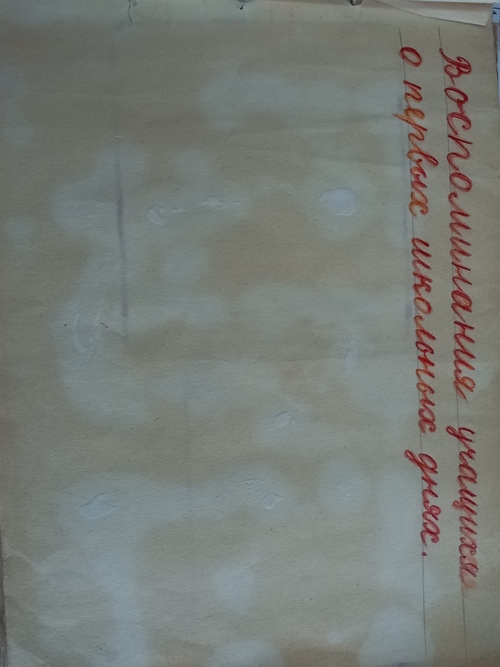 Воспоминания учащихся
о первых школьных днях.